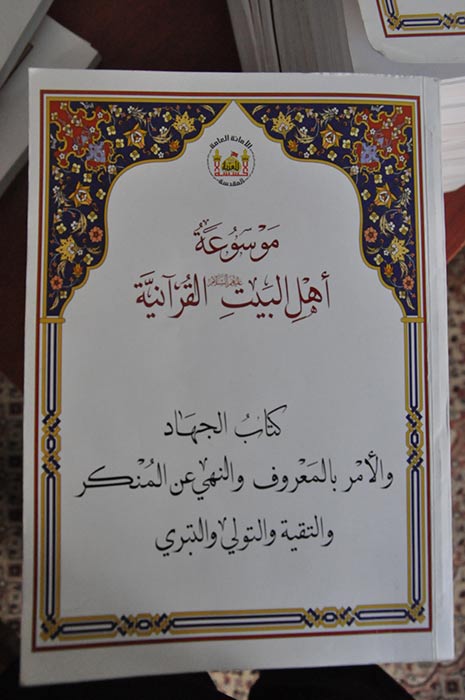 الأمانة العامة
المقدسة
مَوْسُوعَةُ
أَهْلِ البَيْتِ عليهم السلام القُرآنِيَّة
كتابُ الجهاد
والأَمْرِ بالمَعْرُوف والنهي عن المُنْكر
والتقية والتولي والتبري